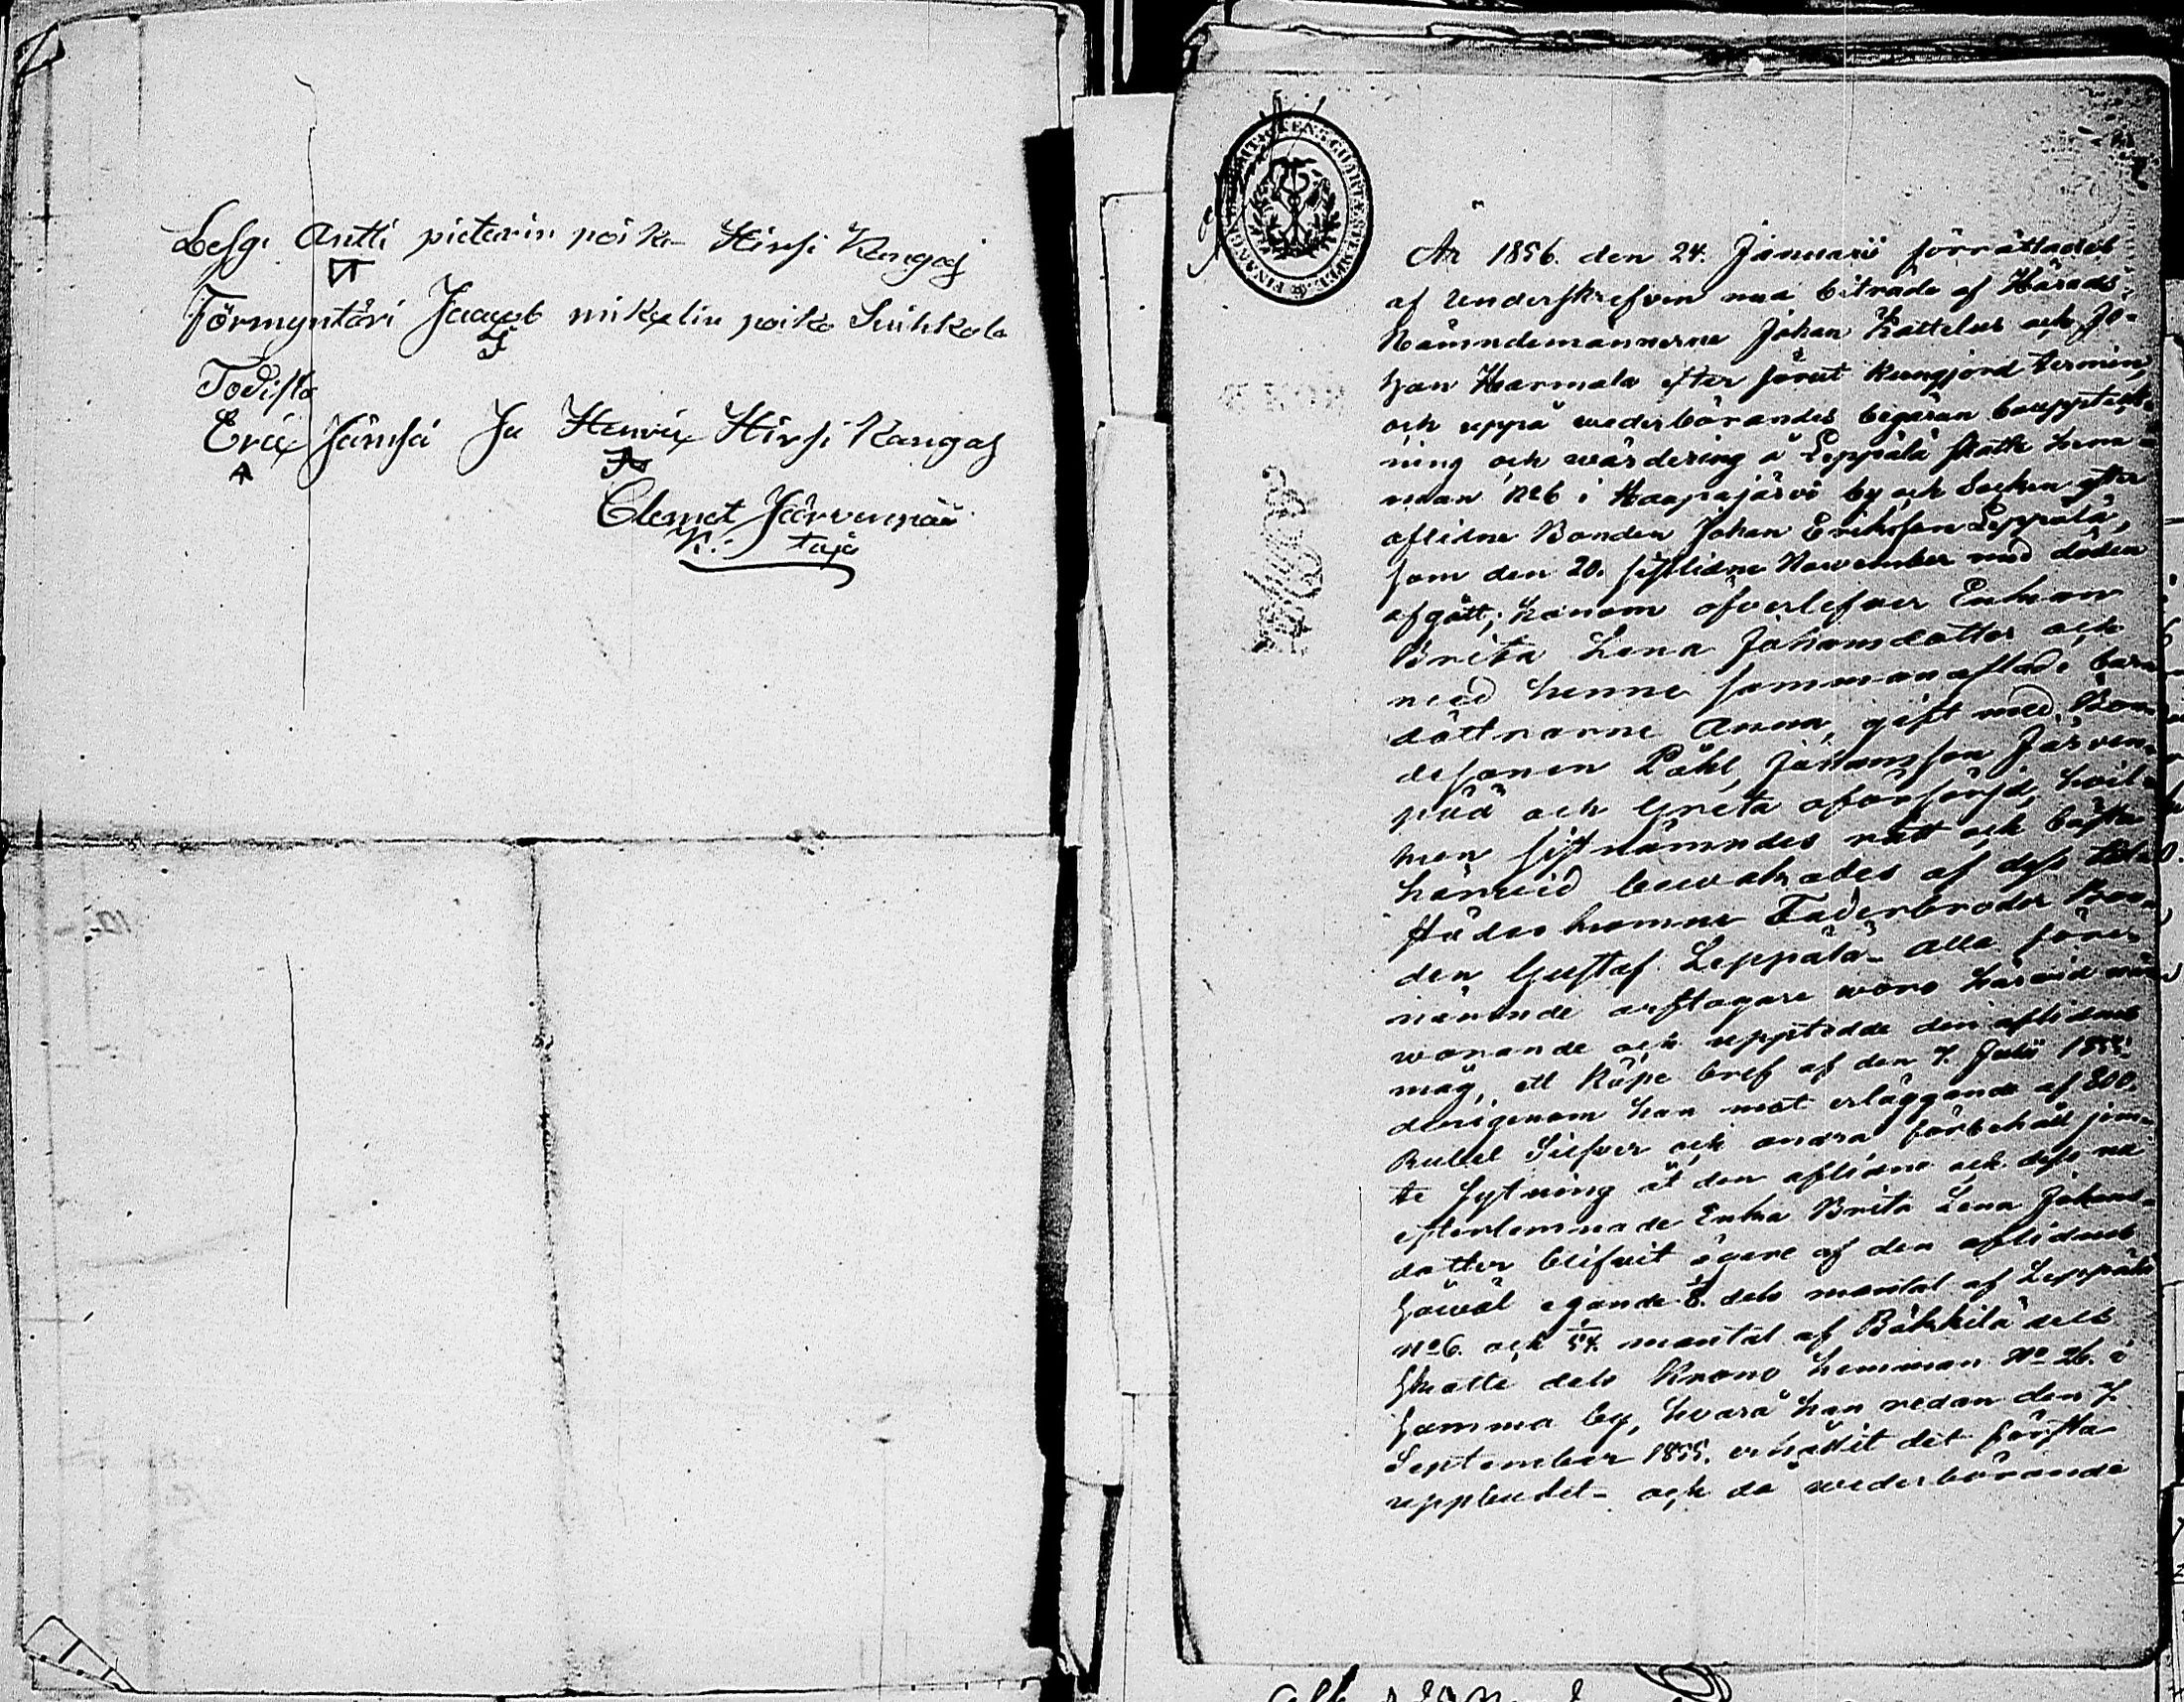 Lesg. Antti pieterin poika Hirsi Kangas
Förmyntäri Jaacob mikelin poika Suihkola
Todista
Erix Jämsä Ja Henrix Hirsi Kangas
Clemet Järvenpää
År 1856. den 24. Januarii förrättades
af Underskrefven med biträde af Härads-
Nämndemännerne Johan Kattelus och Jo-
han Harmala efter förut kungjord termin,
och uppå wederbörandes begäran bouppteck-
ning och wärdering å Leppälä skatte hem-
man No 6 i Haapajärvi by och Socken efter
aflidne Bonden Johan Eriksson Leppälä,
som den 20. sistlidne November med döden
afgått; honom öfverlefver Enkan
Brita Lena Johansdotter och
med henne sammanaflade barn
döttrarne Anna, gift med Bon-
desonen Påhl Johansson Järven-
pää och Greta oförsörjd, hvil-
ken sistnämndes rätt och bästa
härvid bevakades af dess till-
städeskomne Faderbroder Bon-
den Gustaf Leppälä. Alla före-
nämnde arftagare woro härvid när-
warande och upptedde den aflidnes
måg, ett Köpe bref af den 7. Julii 1855.
derigenom han mot erläggande af 800.
Rubel Silfver och andra förbehåll jem-
te sytning åt den aflidne och dess nu
efterlemnade Enka Brita Lena Johans-
dotter blifvit ägare af den aflidnes
såwäl egande 1/8. dels mantal af Leppälä
No 6. och 1/54. mantal af Bäkkilä dels
skatte dels Krono hemman No 26. i
samma by, hvarå han redan den 7.
September 1855. erhållit det första
uppbudet - och då wederbörande